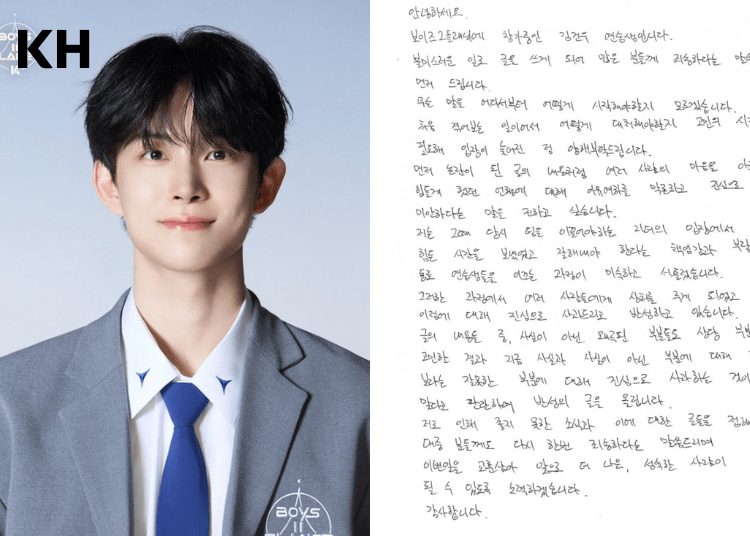 BOYS
II
KH
BOYS
II
안녕하세요.
보이즈2플래닛에 참가중인 김건우 연습생입니다.
불미스러운 일로 글을 쓰게 되어 많은 분들께 죄송하다는 말씀
먼저 드립니다.
무슨 말을 어디서부터 어떻게 시작해야할지 모르겠습니다.
처음 겪어보는 일이어서 어떻게 대처해야할지 고민의 시
필요해 입장이 늦어진 점 양해부탁드립니다.
먼저 논란이 된 글의 내용처럼 여러 사람의 마음을 아
힘들게 했던 언행에 대해 이유여하를 막론하고 진심으로
미안하다는 말을 전하고 싶습니다.
저는 그때 당시 팀을 이끌어야하는 리더의 입장에서
힘든 시간을 보냈었고 잘해내야 한다는 책임감과 부담
동료 연습생들을 이끄는 과정이 미숙하고 서툴렀습니다.
그러한 과정에서 여러 사람들에게 상처를 주게 되었고
이점에 대해 진심으로 사과드리고 반성하고 있습니다.
글의 내용들 중, 사실이 아닌 왜곡된 부분들도 상당 부분
고민한 결과 지금 사실과 사실이 아닌 부분에 대해
보다는 잘못한 부분에 대해 진심으로 사과하는 것이
맞다고 판단하여 반성의 글을 올립니다.
저로 인해 좋지 못한 소식과 이에 대한 글들을 접해
대중 분들께도 다시 한번 죄송하다는 말씀드리며
이번일을 교훈삼아 앞으로 더 나은, 성숙한 사람이
될 수 있도록 노력하겠습니다.
감사합니다.